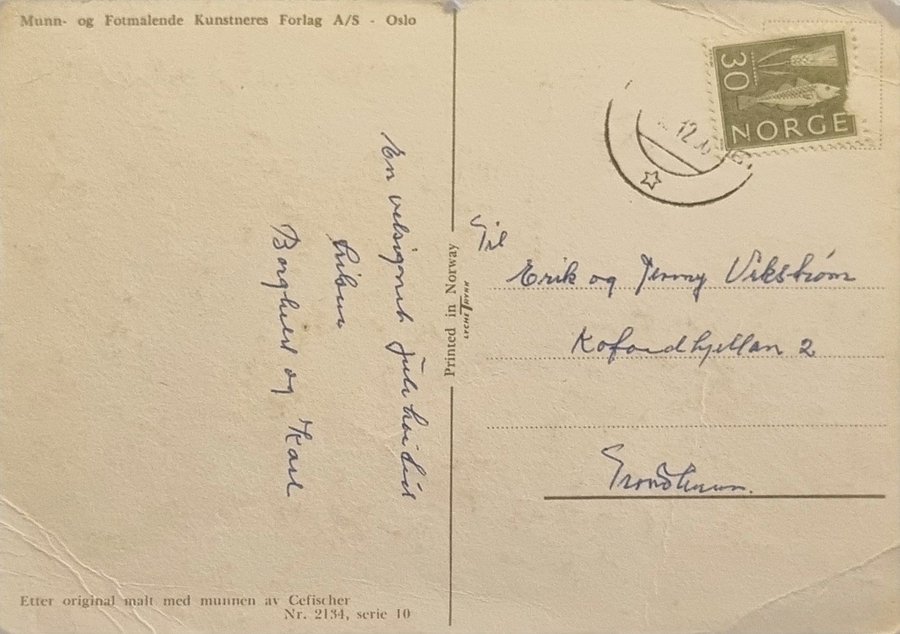 Munn- og Fotmalende Kunstneres Forlag A/S - Oslo
En velsignet julehøitid
Borghild og Karl
Etter original malt med munnen av Cefischer
Nr. 2134, serie 10
Printed in Norway
30
NORGE
12
Til
Erik og Jenny Vikstrøm
2
Trondheim.